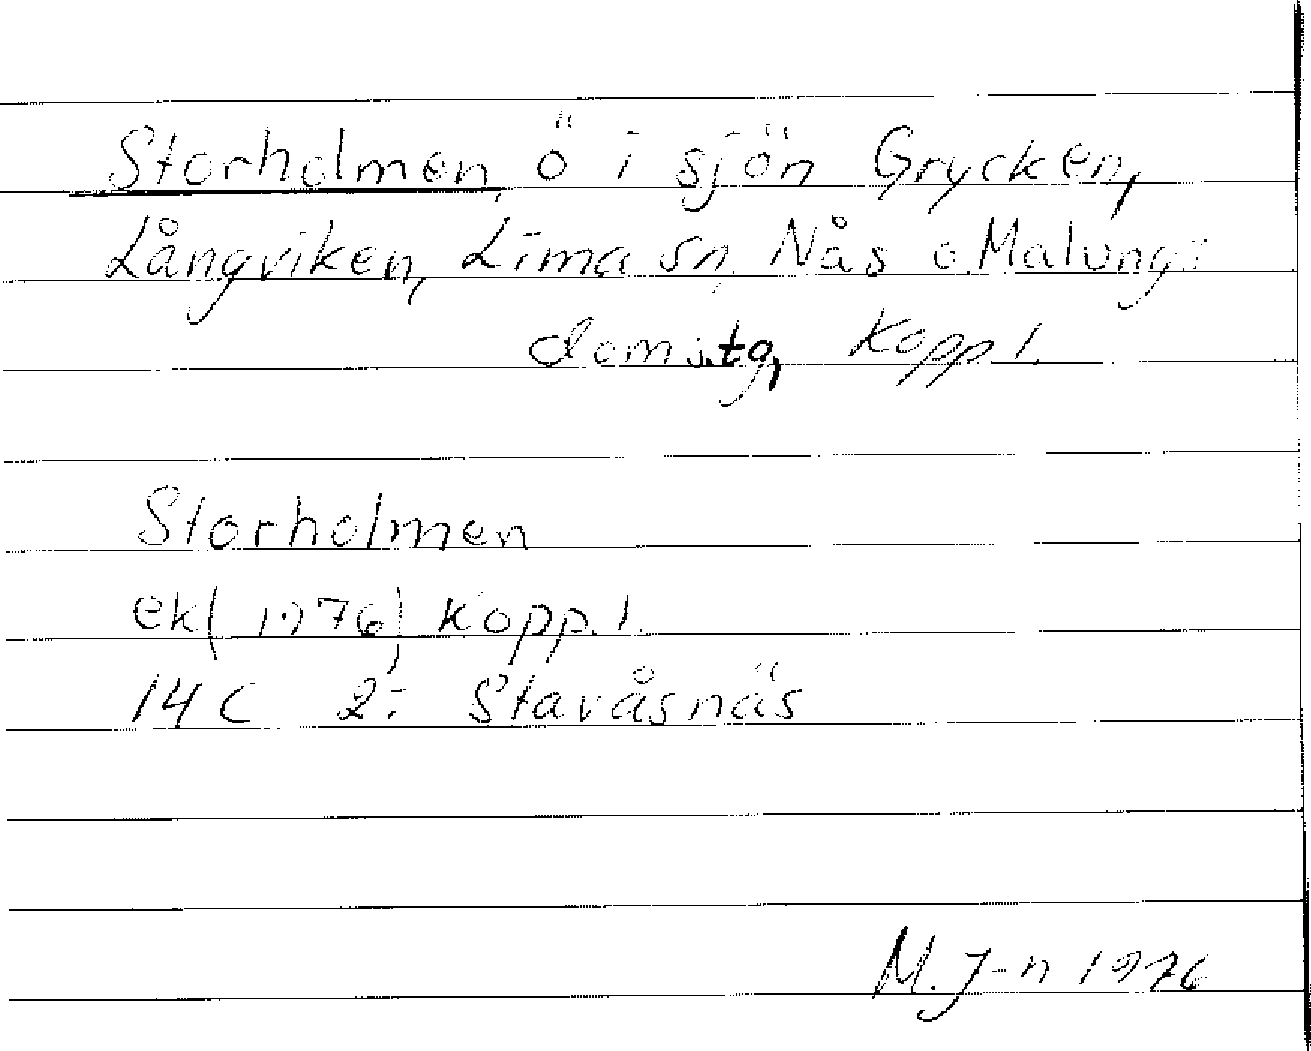 Storholmen, ö i sjön Grycken,
Långviken, Lima sn, Nås o. Malungs
doms.tg, Kopp l.
Storholmen
ek (1976) Kopp. l.
14 C 2: Stavåsnäs
M. J-n 1976